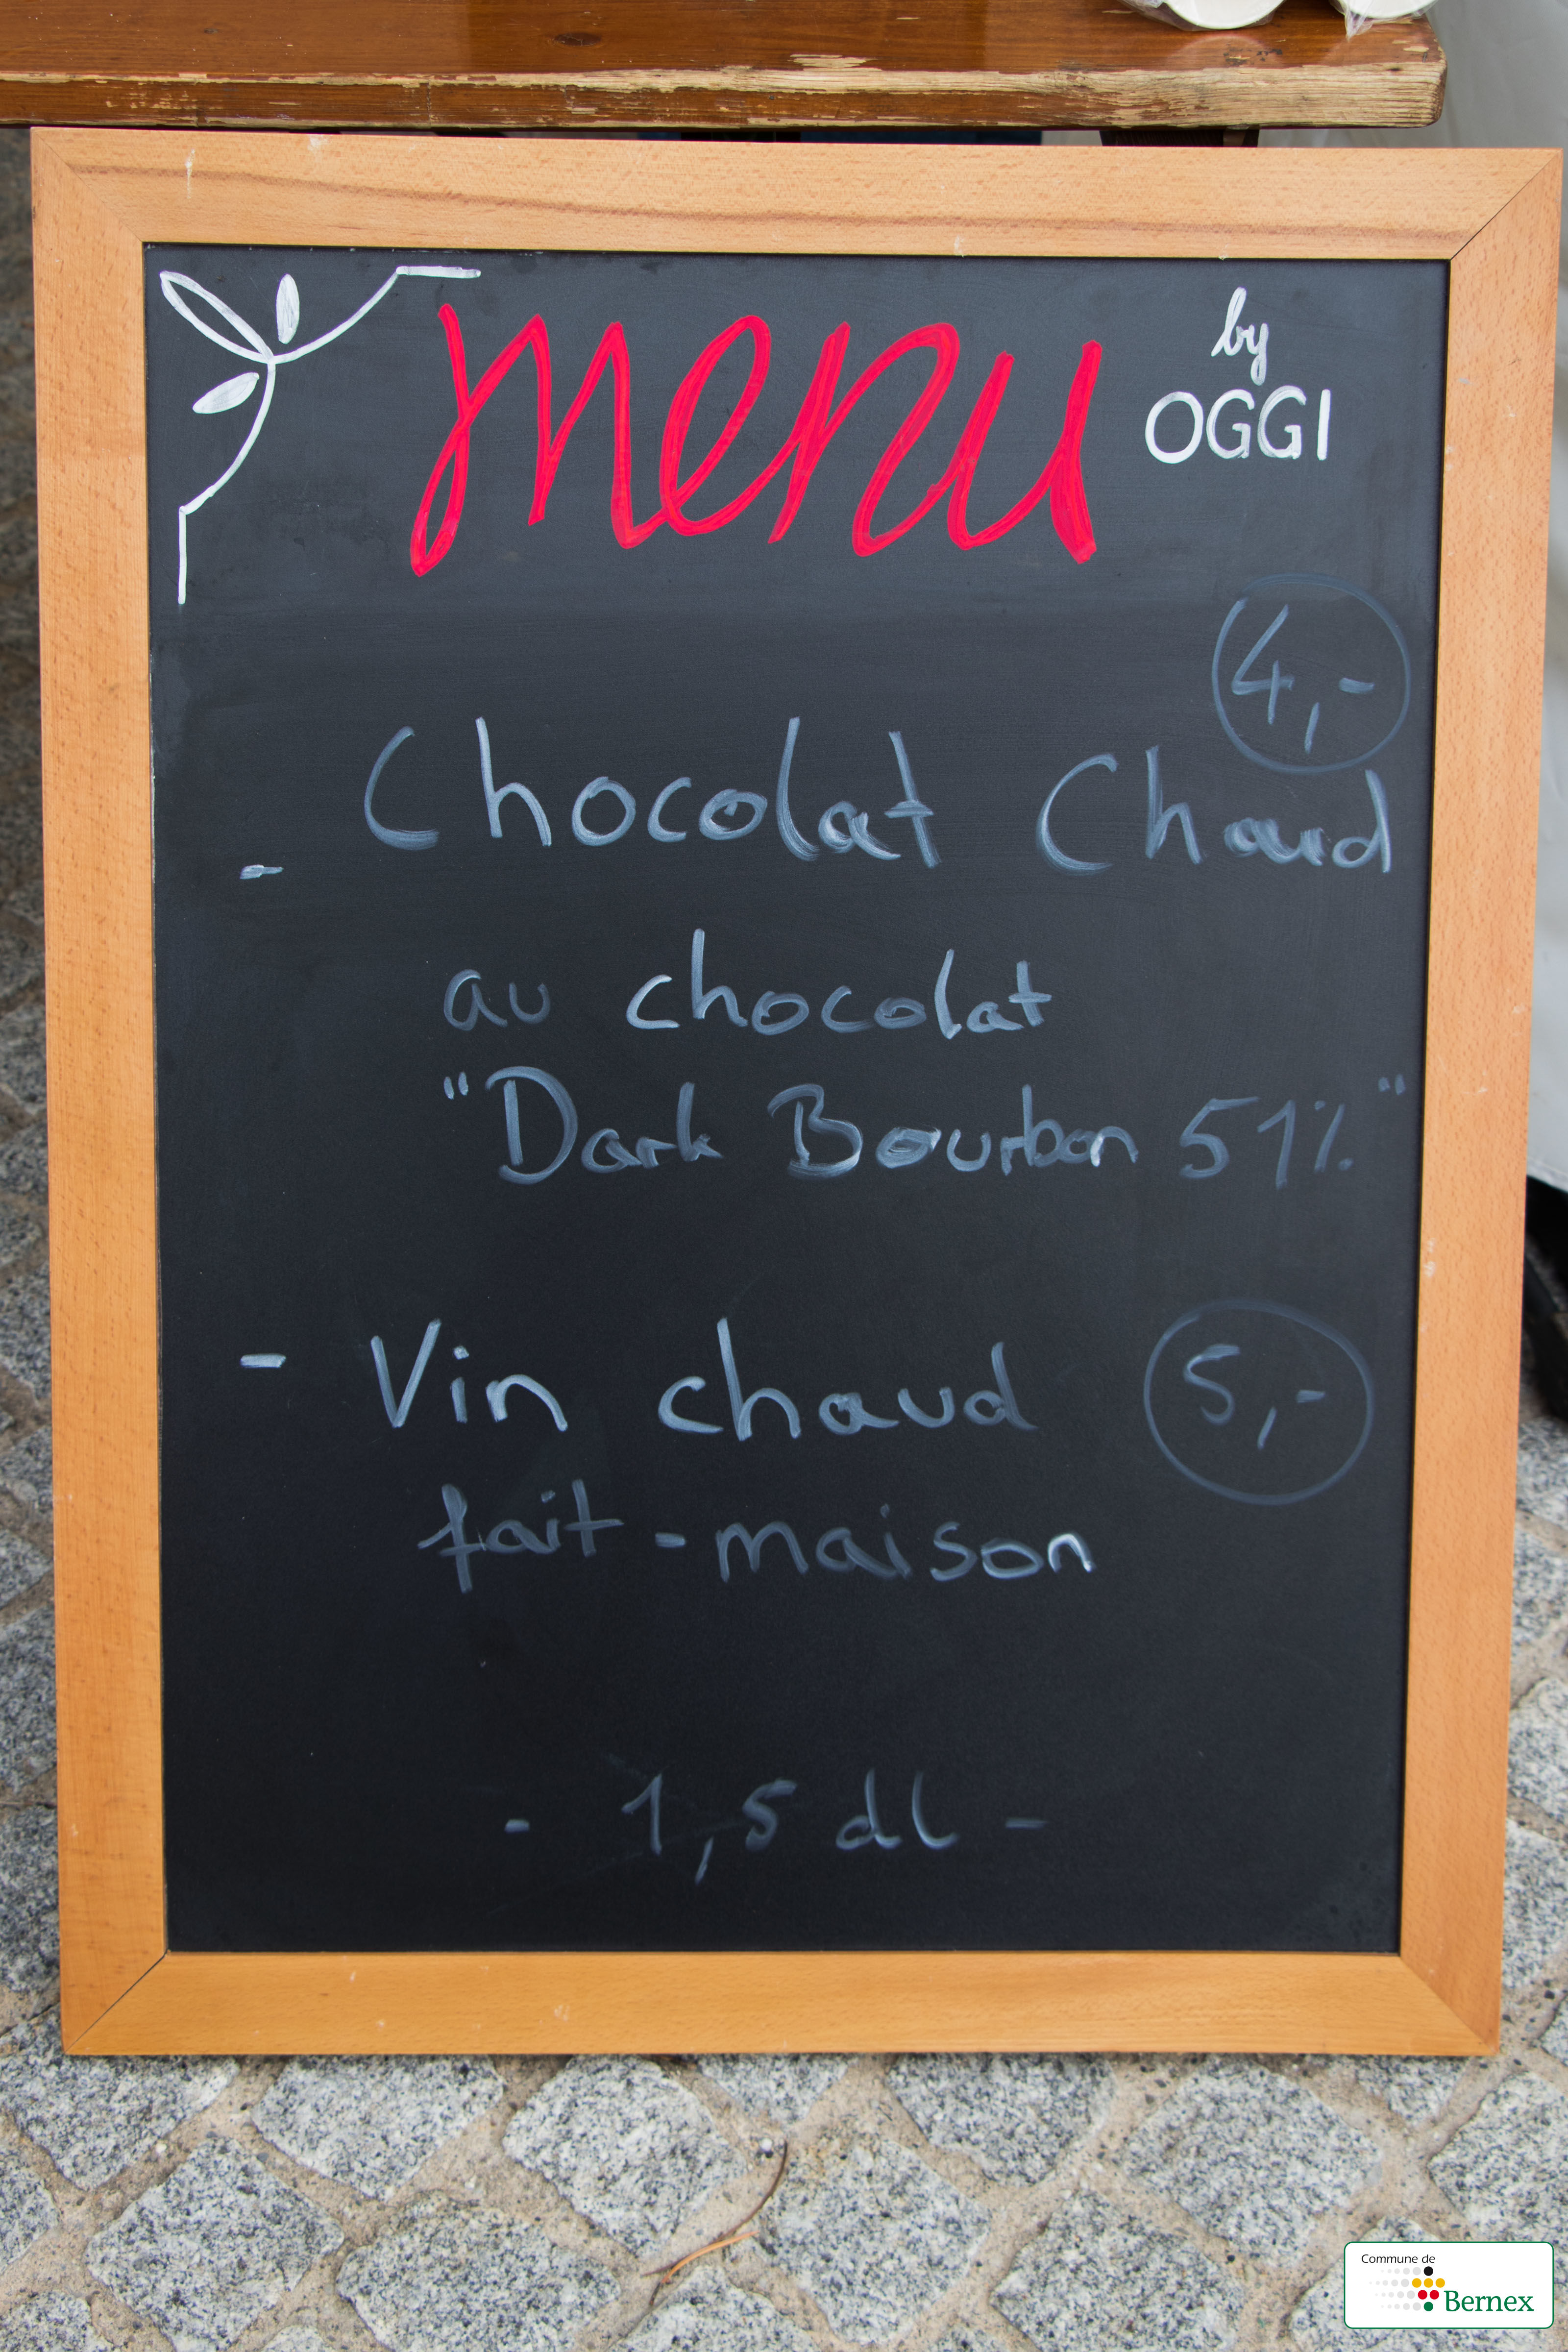 menu
by
OGGI
4,-
- Chocolat Chaud
au chocolat
"Dark Bourbon 51%"
- Vin chaud 5,-
fait-maison
- 1,5 dl -
Commune de
Bernex